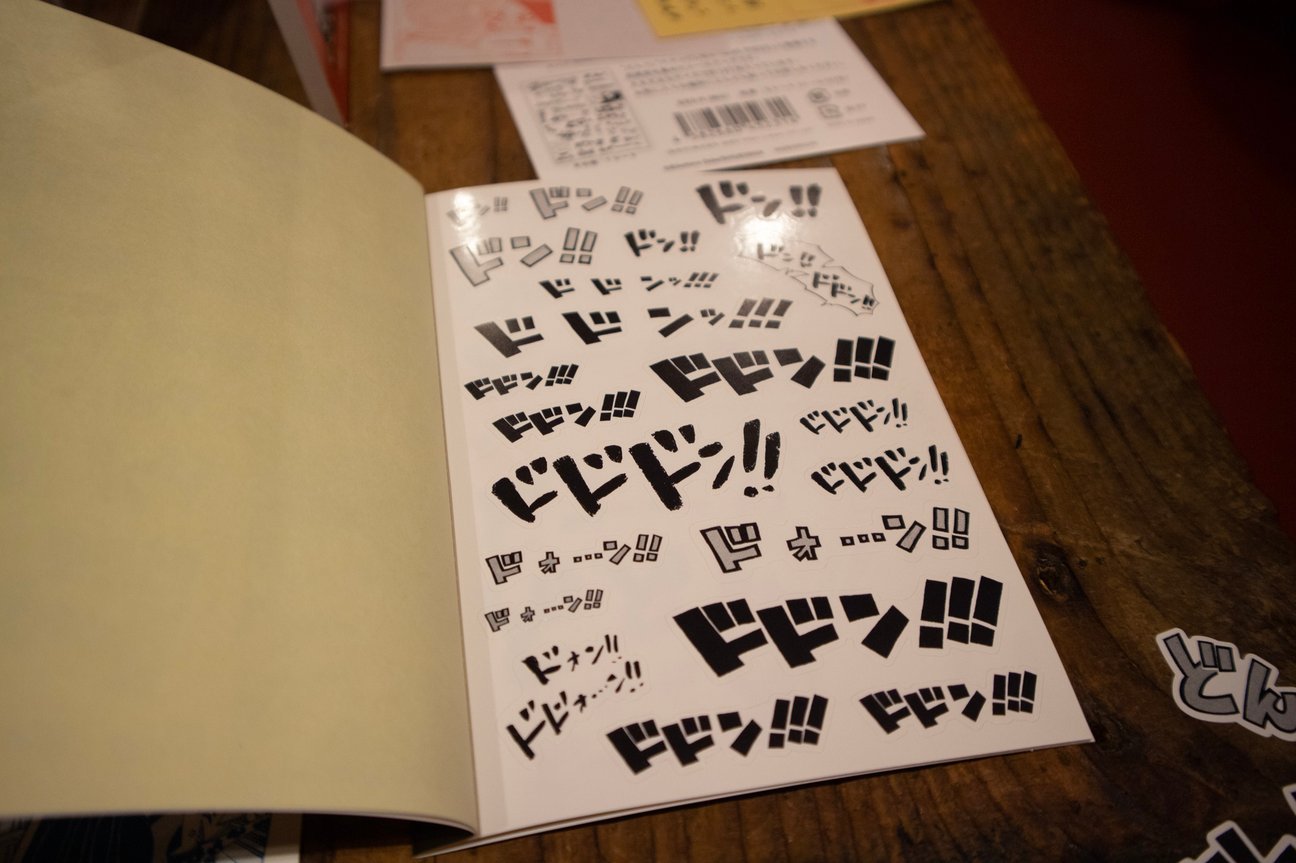 ドン!!
ドン!!
ドン!!
ドン!!
ドン!!
ドン!!
ドドン!!
ドドンッ!!!
ドドンッ!!!
ドドン!!!
ドドン!!!
ドドン!!!
ドドドン!!
ドドドン!!
ドドドン!!
ドォ…ン!!
ドォ…ン!!
ドォ…ン!!
ドドン!!!
ドォン!!
ドドォ…ン!!
ドドン!!!
ドドン!!!
どん